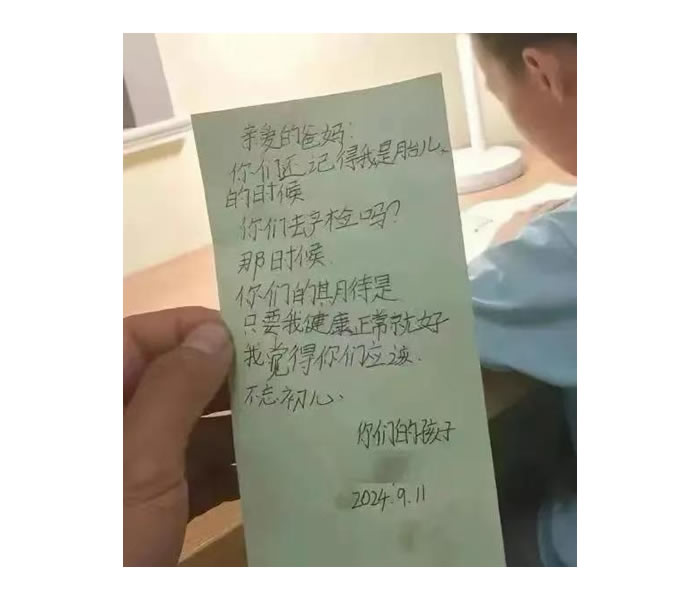 亲爱的爸妈:
你们还记得我是胎儿
的时候
你们去孕检吗?
那时候
你们的期待是
只要我健康正常就好
我觉得你们应该
不忘初心
你们的孩子
2024.9.11